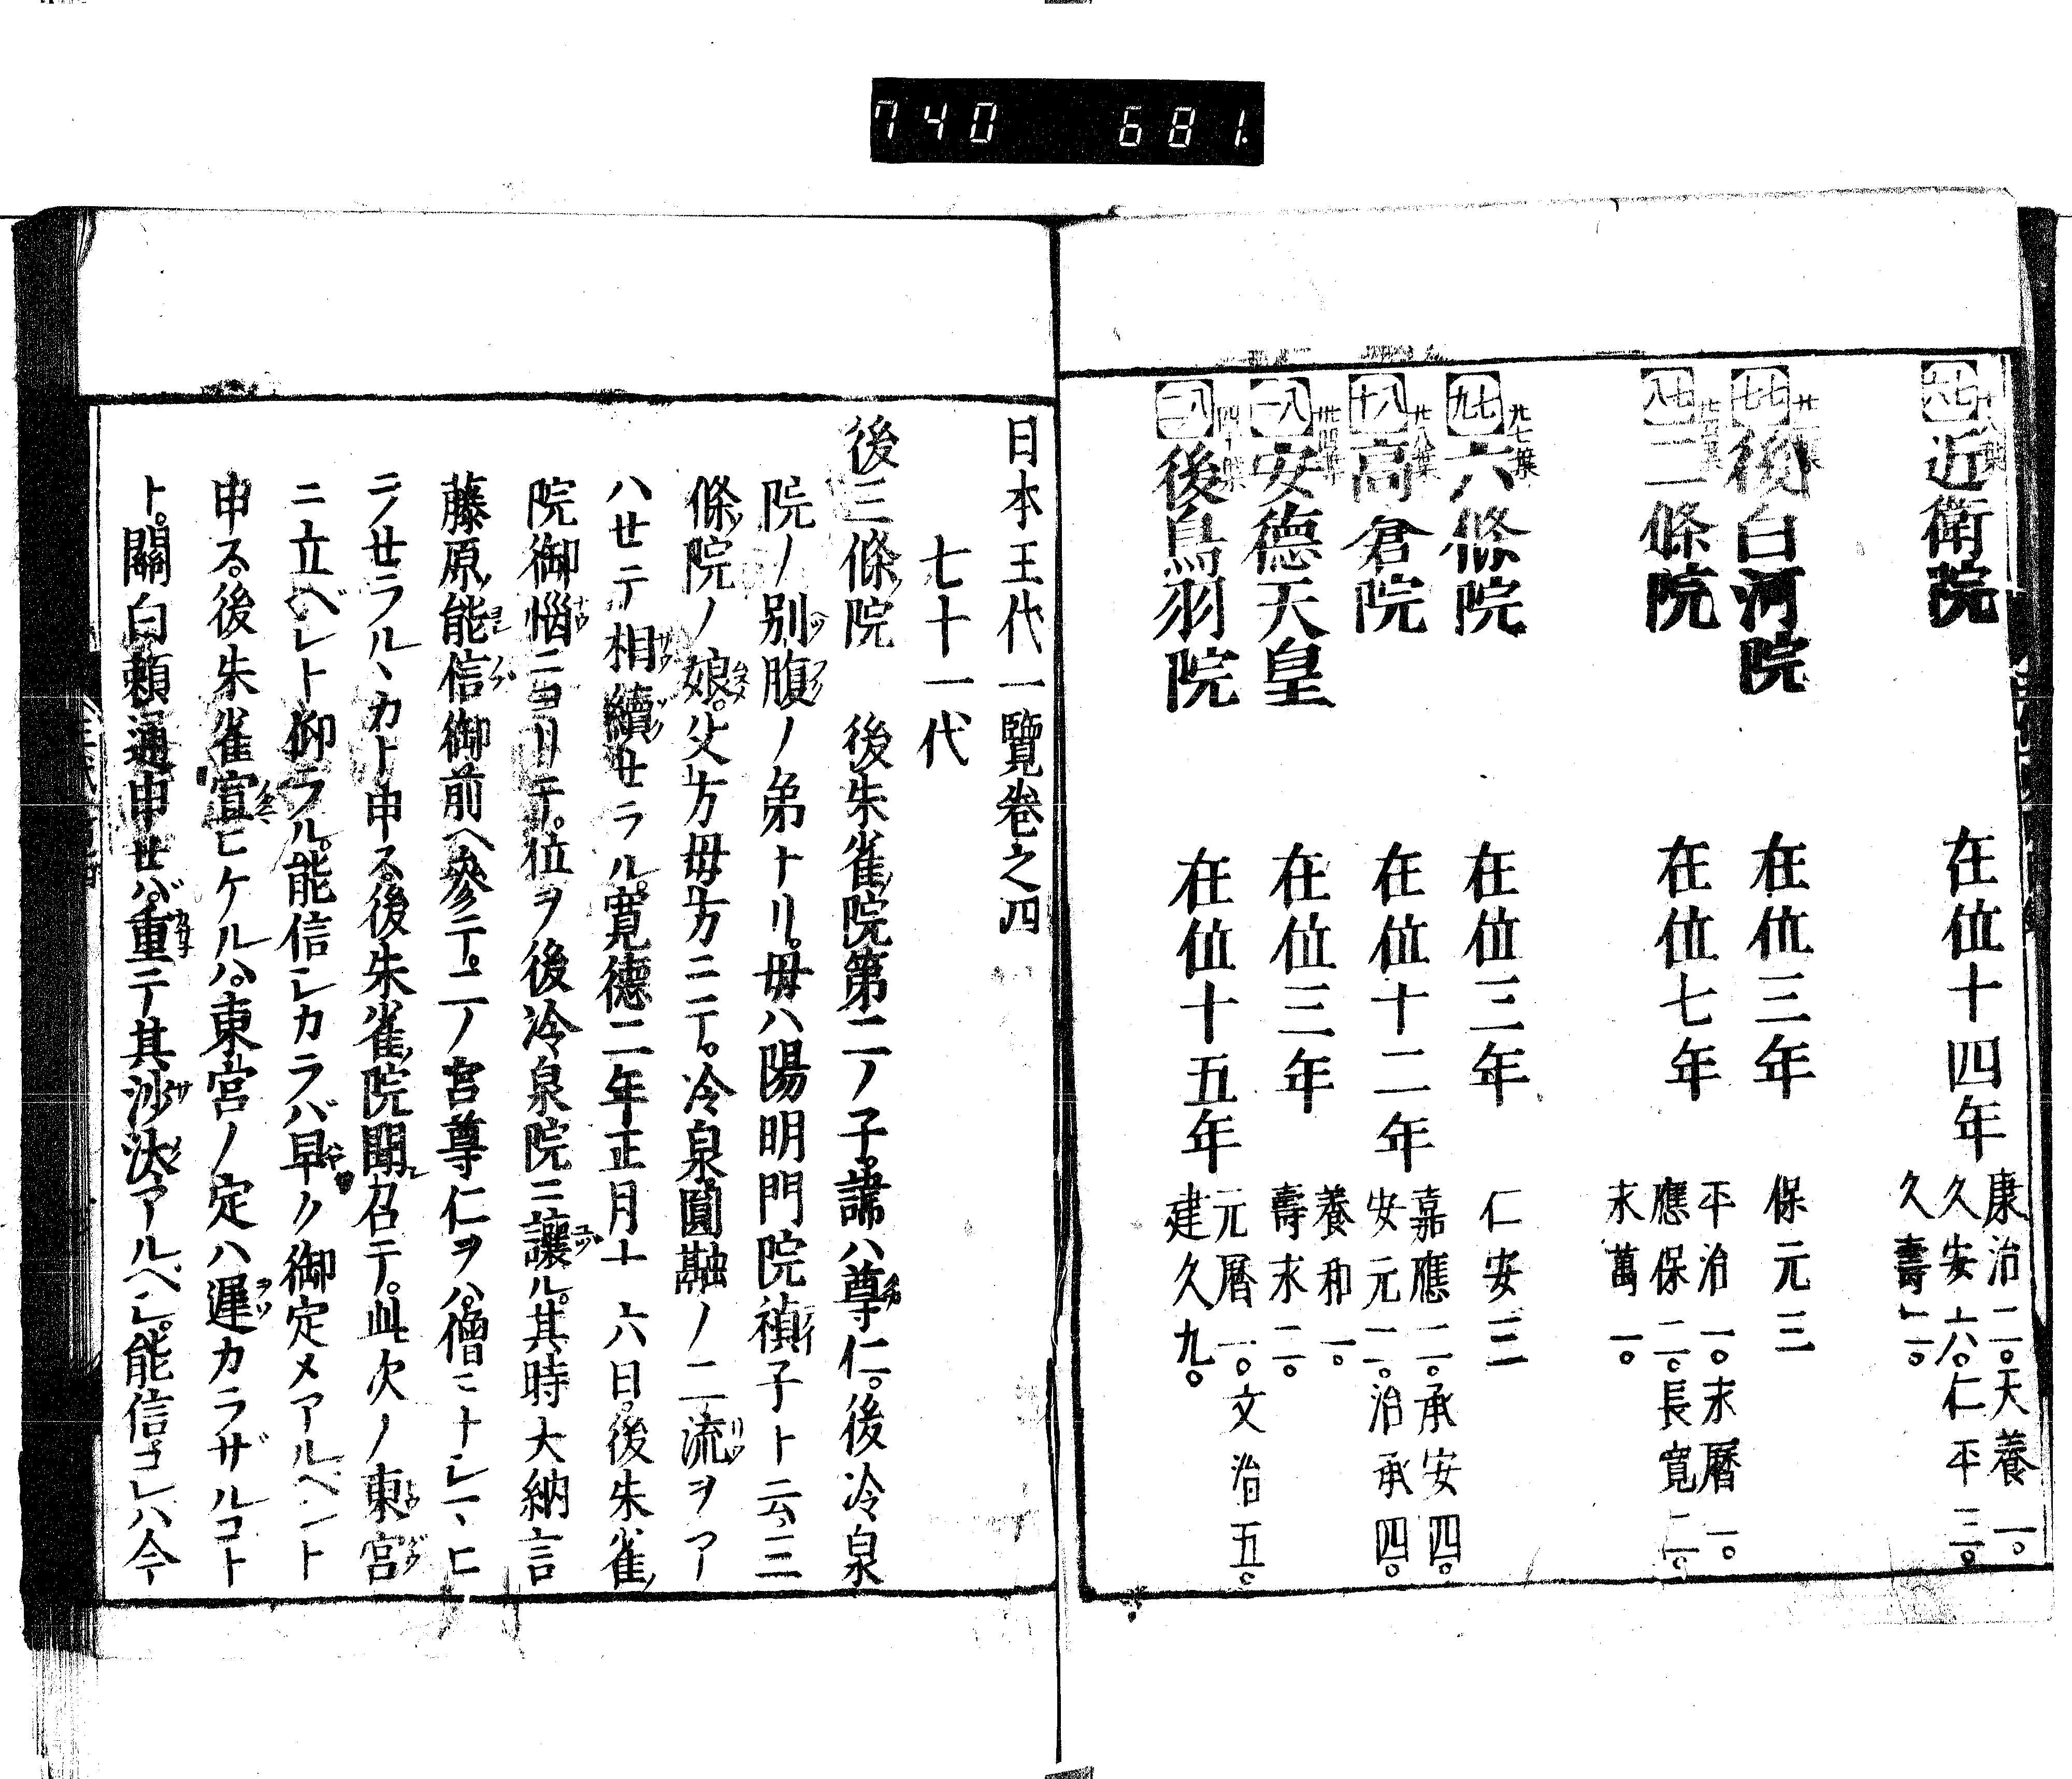 740 681.
七六
近衛院 在位十四年 康治二。天養一。
久安六。仁平三。
久壽二。
七七
後白河院 在位三年 保元三
七八
二條院 在位七年 平治一。永曆一。
應保二。長寬二。
永萬一。
七九
六條院 在位三年 仁安三
八十
高倉院 在位十二年 嘉應二。承安四。
安元二。治承四。
八一
安德天皇 在位三年 養和一。
壽永二。
八二
後鳥羽院 在位十五年 元曆一。文治五。
建久九。
日本王代一覽卷之四
七十一代
後三條院 後朱雀院第二ノ子。諱ハ尊仁。後冷泉
院ノ別腹ノ弟ナリ。母ハ陽明門院禎子ト云。三
條院ノ娘。父方母方ニテ。冷泉圓融ノ二流ヲア
ハセテ相續セラル。寬德二年正月十六日。後朱雀
院御惱ニヨリテ。位ヲ後冷泉院ニ讓ル。其時大納言
藤原能信御前ヘ參テ。二ノ宮尊仁ヲハ。僧ニナシタマヒ
ニノセラルヽカト申ス。後朱雀院聞召テ。此次ノ東宮
ニ立ベシト仰ラル。能信シカラバ早ク御定メアルベシト
申ス。後朱雀宣ヒケルハ。東宮ノ定ハ遲カラザルコト
ト。關白賴通申セバ。重テ其沙汰アルベシ。能信コレハ今